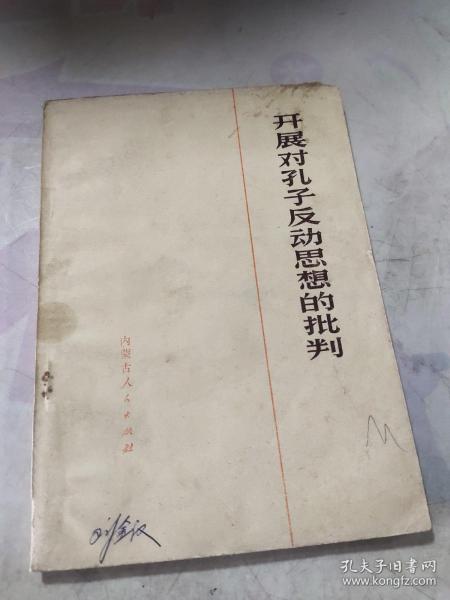 开展对孔子反动思想的批判
内蒙古人民出版社
刘金汉
孔夫子旧书网
www.kongfz.com